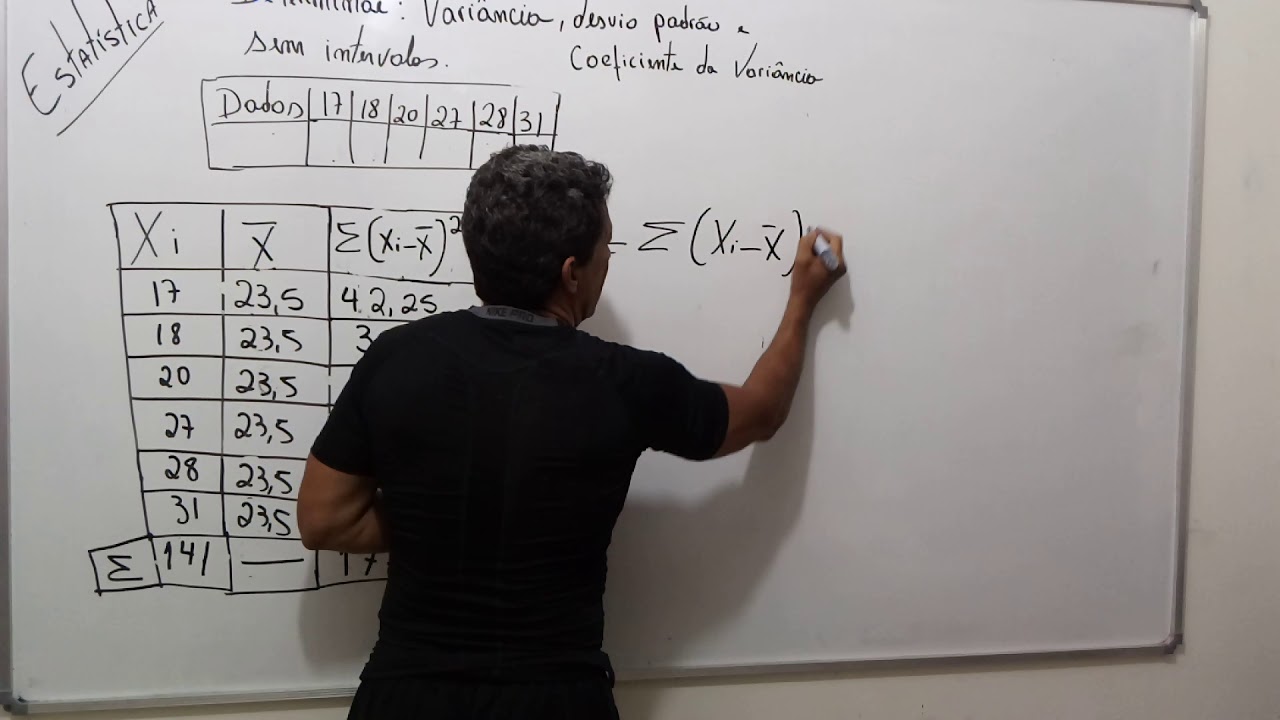 ESTATÍSTICA
Determinar: Variância, desvio padrão e
sem intervalos. Coeficiente da Variância
Dados 17 18 20 27 28 31
Xi X̄ Σ(Xi-X̄)²
17 23,5 42,25
18 23,5 3
20 23,5
27 23,5
28 23,5
31 23,5
Σ 141 — 17
Σ(Xi-X̄)
NIKE PRO